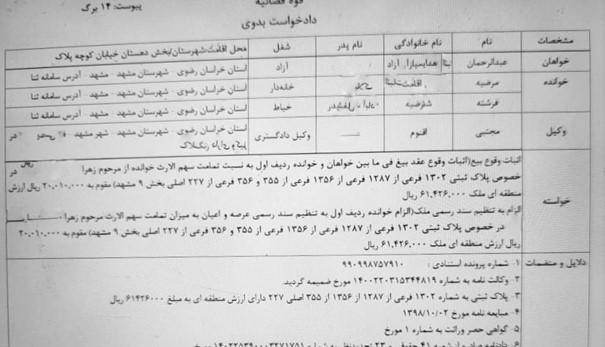 قوه قضائیه
پیوست: ۱۴ برگ
دادخواست بدوی
مشخصات نام نام خانوادگی نام پدر شغل محل اقامت:شهرستان/بخش دهستان خیابان کوچه پلاک
خواهان عبدالرحمان آزاد استان خراسان رضوی - شهرستان مشهد - مشهد - آدرس سامانه ثنا
خوانده مرضیه خانه‌دار استان خراسان رضوی - شهرستان مشهد - مشهد - آدرس سامانه ثنا
فرشته خیاط استان خراسان رضوی - شهرستان مشهد - مشهد - آدرس سامانه ثنا
وکیل مجتبی اقنوم وکیل دادگستری استان خراسان رضوی - شهرستان مشهد - شهر مشهد -
خواسته
اثبات وقوع بیع(اثبات وقوع عقد بیع فی ما بین خواهان و خوانده ردیف اول به نسبت تمامت سهم الارث خوانده از مرحوم زهرا در
خصوص پلاک ثبتی ۱۳۰۲ فرعی از ۱۲۸۷ فرعی از ۱۳۵۶ فرعی از ۳۵۵ و ۳۵۶ فرعی از ۲۲۷ اصلی بخش ۹ مشهد) مقوم به ۲۰،۰۱۰،۰۰۰ ریال ارزش
منطقه ای ملک ۶۱،۴۲۶،۰۰۰ ریال
الزام به تنظیم سند رسمی ملک(الزام خوانده ردیف اول به تنظیم سند رسمی عرصه و اعیان به میزان تمامت سهم الارث مرحوم زهرا
در خصوص پلاک ثبتی ۱۳۰۲ فرعی از ۱۲۸۷ فرعی از ۱۳۵۶ فرعی از ۳۵۵ و ۳۵۶ فرعی از ۲۲۷ اصلی بخش ۹ مشهد) مقوم به ۲۰،۰۱۰،۰۰۰
ریال ارزش منطقه ای ملک ۶۱،۴۲۶،۰۰۰ ریال
دلایل و منضمات
۱- شماره پرونده استنادی : ۹۹۰۹۹۸۷۵۷۹۱۰
۲- وکالت نامه به شماره ۱۴۰۰۲۲۰۳۱۵۳۴۴۸۱۹ مورخ ضمیمه گردید.
۳- پلاک ثبتی به شماره ۱۳۰۲ فرعی از ۱۲۸۷ از ۱۳۵۶ از ۳۵۵ اصلی ۲۲۷ دارای ارزش منطقه ای به مبلغ ۶۱۴۲۶۰۰۰ ریال
۴- مبایعه نامه مورخ ۱۳۹۸/۱۰/۰۲
۵- گواهی حصر وراثت به شماره ۱ مورخ